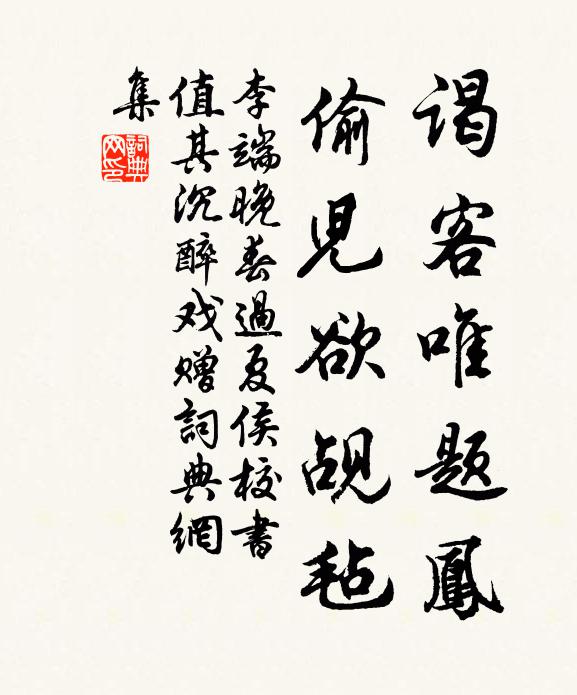 谒客唯题鳳
偷兒欲觇毡
李端晚春過夏侯校書
值其沉醉戏赠詞典網
集
詞典网印